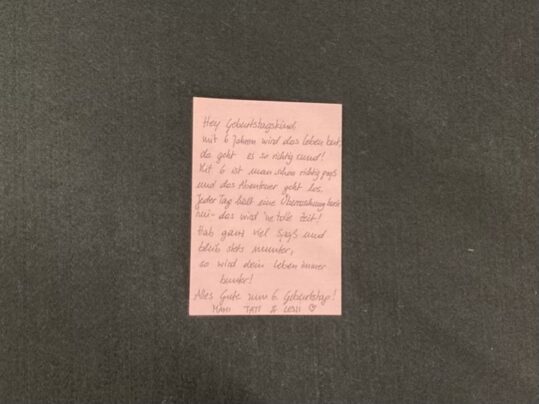 Hey Geburtstagskind
mit 6 Jahren wird das Leben bunt,
da geht es so richtig rund!
Mit 6 ist man schon richtig groß
und das Abenteuer geht los.
Jeder Tag hält eine Überraschung bereit
hui - das wird 'ne tolle Zeit!
Hab ganz viel Spaß und
bleib stets munter,
so wird dein Leben immer
bunter!
Alles Gute zum 6. Geburtstag!
MAMI TATI &